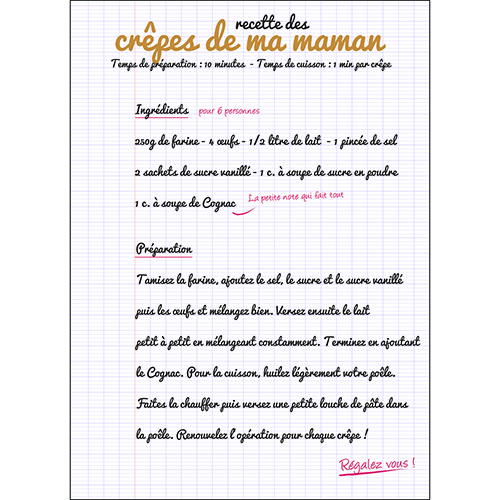 recette des
crêpes de ma maman
Temps de préparation : 10 minutes - Temps de cuisson : 1 min par crêpe
Ingrédients pour 6 personnes
250g de farine - 4 œufs - 1/2 litre de lait - 1 pincée de sel
2 sachets de sucre vanillé - 1 c. à soupe de sucre en poudre
1 c. à soupe de Cognac La petite note qui fait tout
Préparation
Tamisez la farine, ajoutez le sel, le sucre et le sucre vanillé
puis les œufs et mélangez bien. Versez ensuite le lait
petit à petit en mélangeant constamment. Terminez en ajoutant
le Cognac. Pour la cuisson, huilez légèrement votre poêle.
Faites la chauffer puis versez une petite louche de pâte dans
la poêle. Renouvelez l'opération pour chaque crêpe !
Régalez vous !